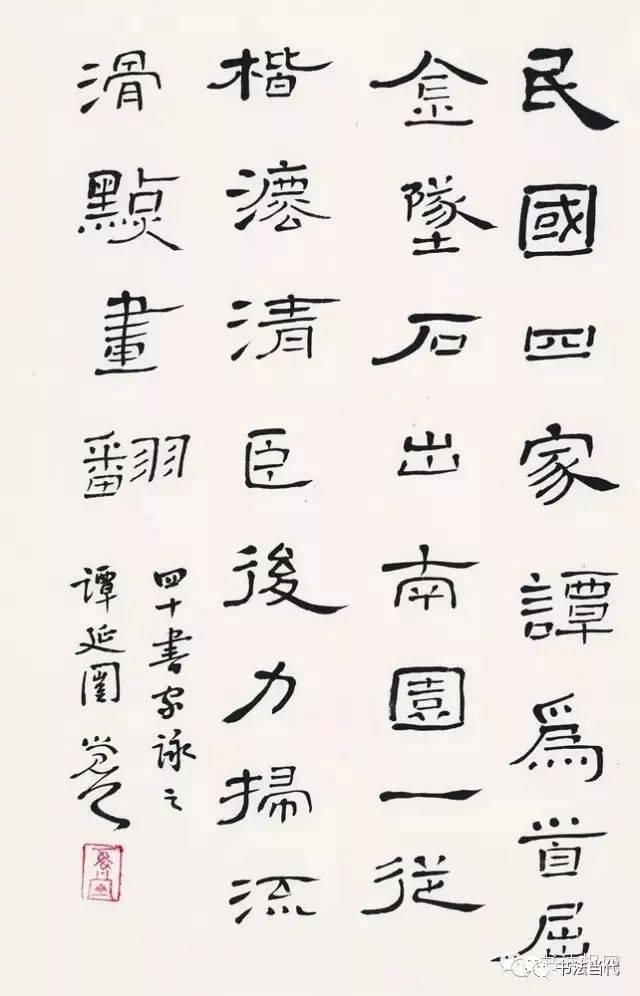 民國四家譚為首屈
金墜石出南園一從
楷灋清臣後力掃流
滑點畫翻
四十書家詠之
譚延闓
书法当代